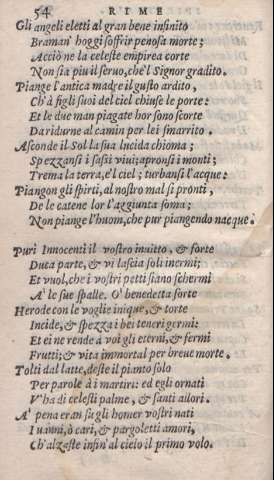 54 RIME
Gli angeli eletti al gran bene infinito
Braman' hoggi soffrir penosa morte;
Acciò ne la celeste empirea corte
Non sia piu il seruo, che'l Signor gradito.
Piange l'antica madre il gusto ardito,
Ch'à figli suoi del ciel chiuse le porte:
Et le due man piagate hor sono scorte
Da ridurne al camin per lei smarrito.
Asconde il Sol la sua lucida chioma;
Spezzansi i sassi viui; apronsi i monti;
Trema la terra, e'l ciel; turbansi l'acque:
Piangon gli spirti, al nostro mal sì pronti,
De le catene lor l'aggiunta soma;
Non piange l'huom, che pur piangendo nacque.
Puri Innocenti il vostro inuitto, & forte
Duca parte, & vi lascia soli inermi;
Et vuol, che i vostri petti siano schermi
A' le sue spalle. O' benedetta sorte
Herode con le voglie inique, & torte
Incide, & spezza i bei teneri germi:
Et ei ne rende a voi gli eterni, & fermi
Frutti; & vita immortal per breue morte.
Tolti dal latte, deste il pianto solo
Per parole à i martiri: ed egli ornati
V'ha di celesti palme, & santi allori.
A' pena eran su gli homer vostri nati
I uanni, ò cari, & pargoletti amori,
Ch'alzaste infin'al cielo il primo volo.